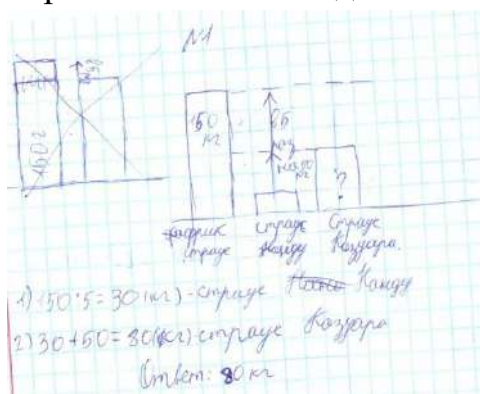 №1
150 г
150
кг
в 5
раз
на 50
кг
?
африк страус
страус Нанду
страус Казуара.
1) 150:5=30 (кг) - страус Нанду
2) 30+50=80 (кг) страус Казуара
Ответ: 80 кг